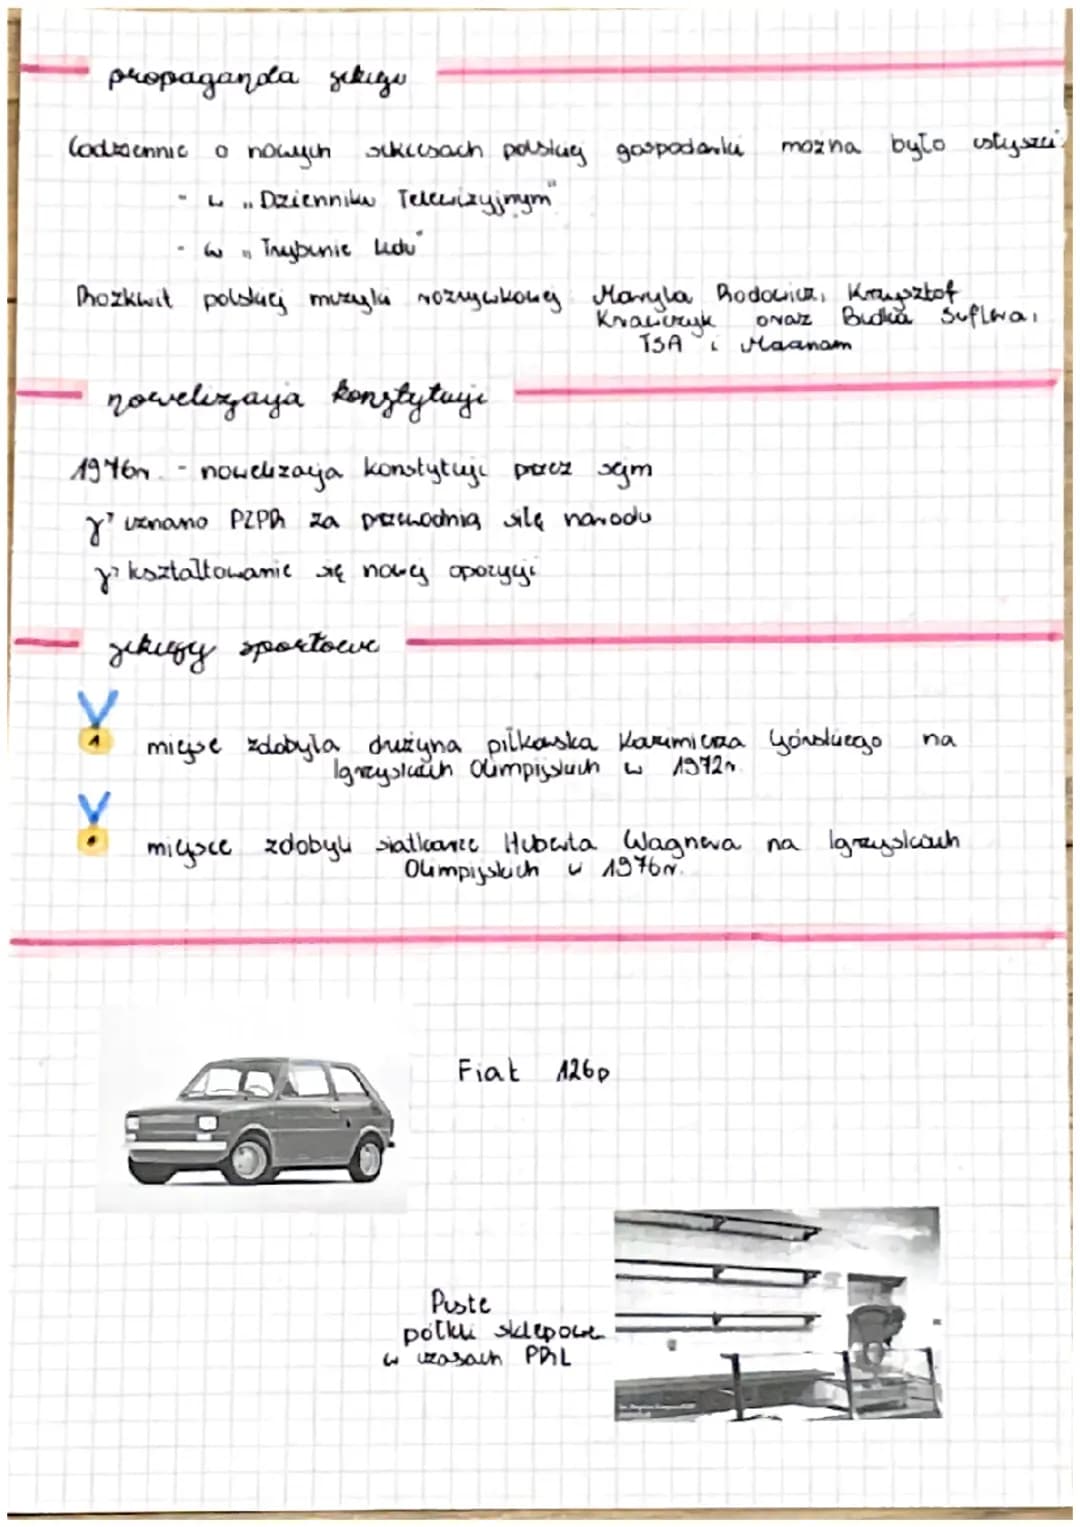 propaganda sukcesu
Codziennie o nowych sukcesach polskiej gospodarki można było usłyszeć:
- w „Dzienniku Telewizyjnym"
- w „Trybunie Ludu"
Rozkwit polskiej muzyki rozrywkowej Maryla Rodowicz, Krzysztof
Krawczyk oraz Budka Suflera,
TSA i Maanam
nowelizacja konstytucji
1976r. - nowelizacja konstytucji przez sejm
uznano PZPR za przewodnią siłę narodu
kształtowanie się nowej opozycji
sukcesy sportowe
1 miejsce zdobyła drużyna piłkarska Kazimierza Górskiego na
Igrzyskach Olimpijskich w 1972r.
miejsce zdobyli siatkarze Huberta Wagnera na Igrzyskach
Olimpijskich w 1976r.
Fiat 126p
Puste
półki sklepowe
w czasach PRL